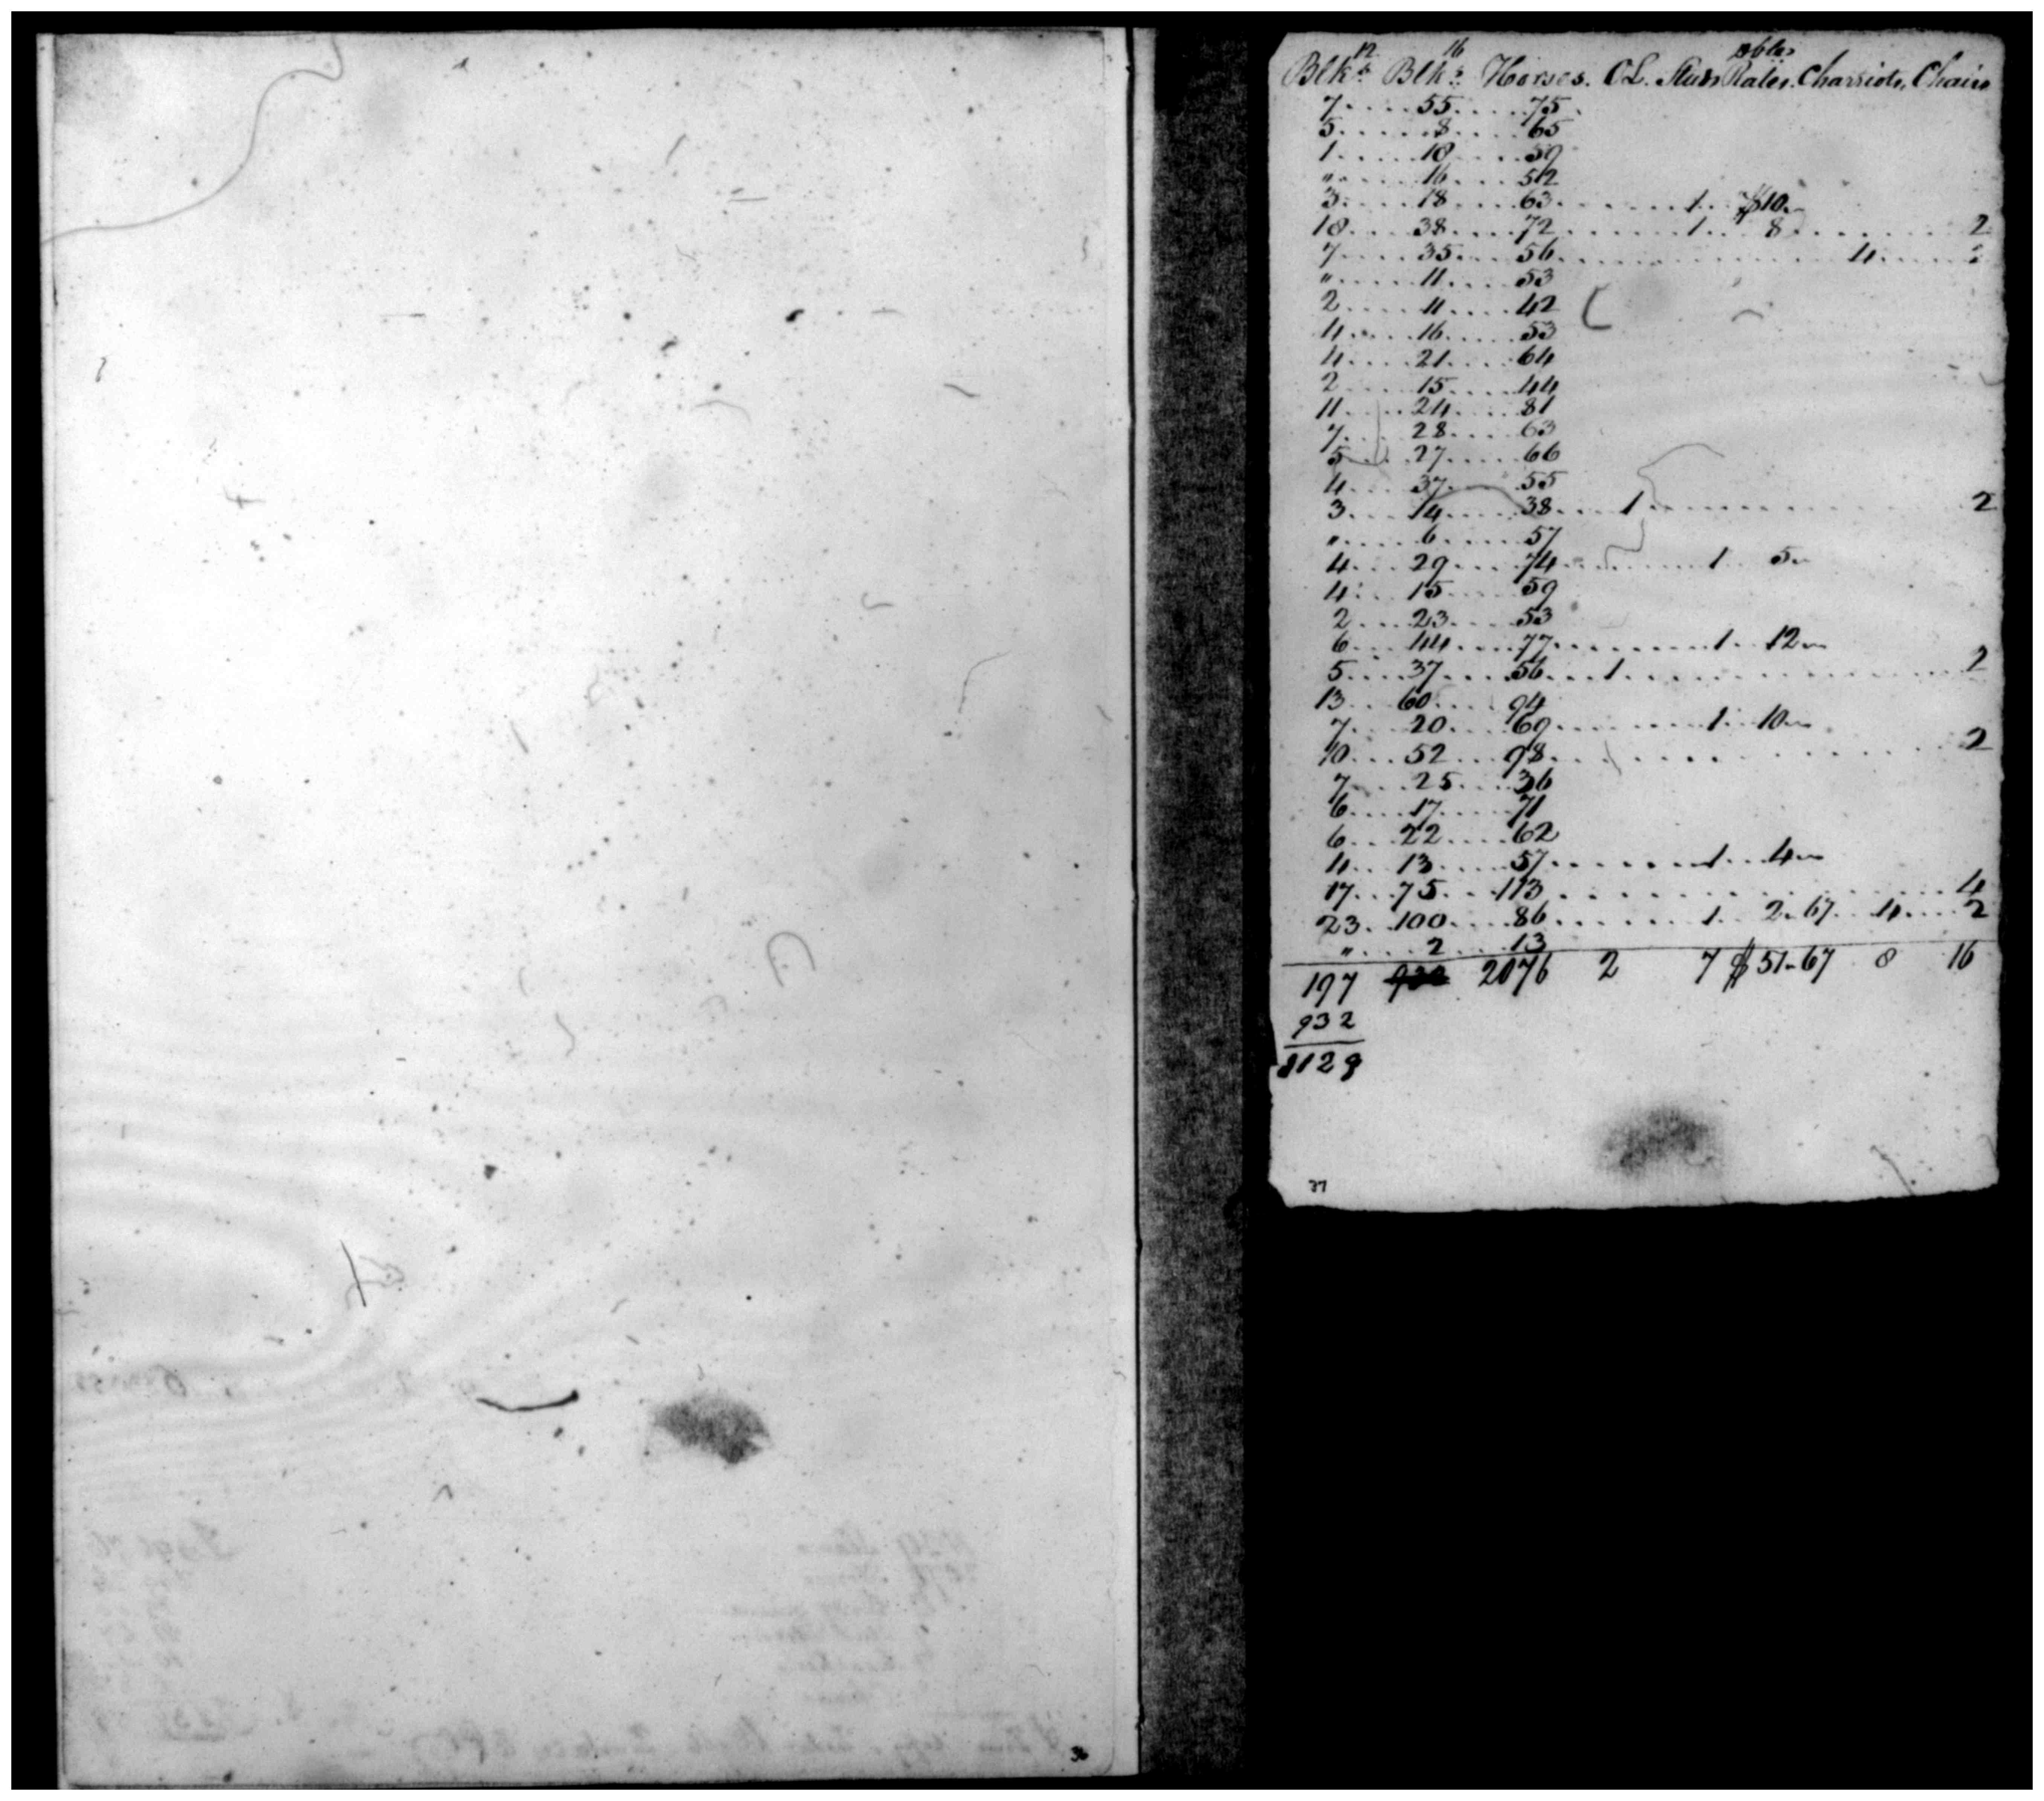 Blks 12 Blks 16 Horses. O.L. Studs Rates. Charriots, Chairs
7 55 75
5 8 65
1 10 59
" 16 52
3 18 63 1 $10
10 38 72 1 8 2
7 35 56 4
" 11 53
2 11 42
4 16 53
4 21 64
2 15 44
11 24 81
7 28 63
5 27 66
4 37 55
3 14 38 1 2
" 6 57
4 29 74 1 5
4 15 59
2 23 53
6 44 77 1 12
5 37 56 1 2
13 60 94
7 20 69 1 10
10 52 98 2
7 25 36
6 17 71
6 22 62
4 13 57 1 4
17 75 113 4
23 100 86 1 2.67 4 2
" 2 13
197 2076 2 7 $51.67 8 16
932
1129
37
36